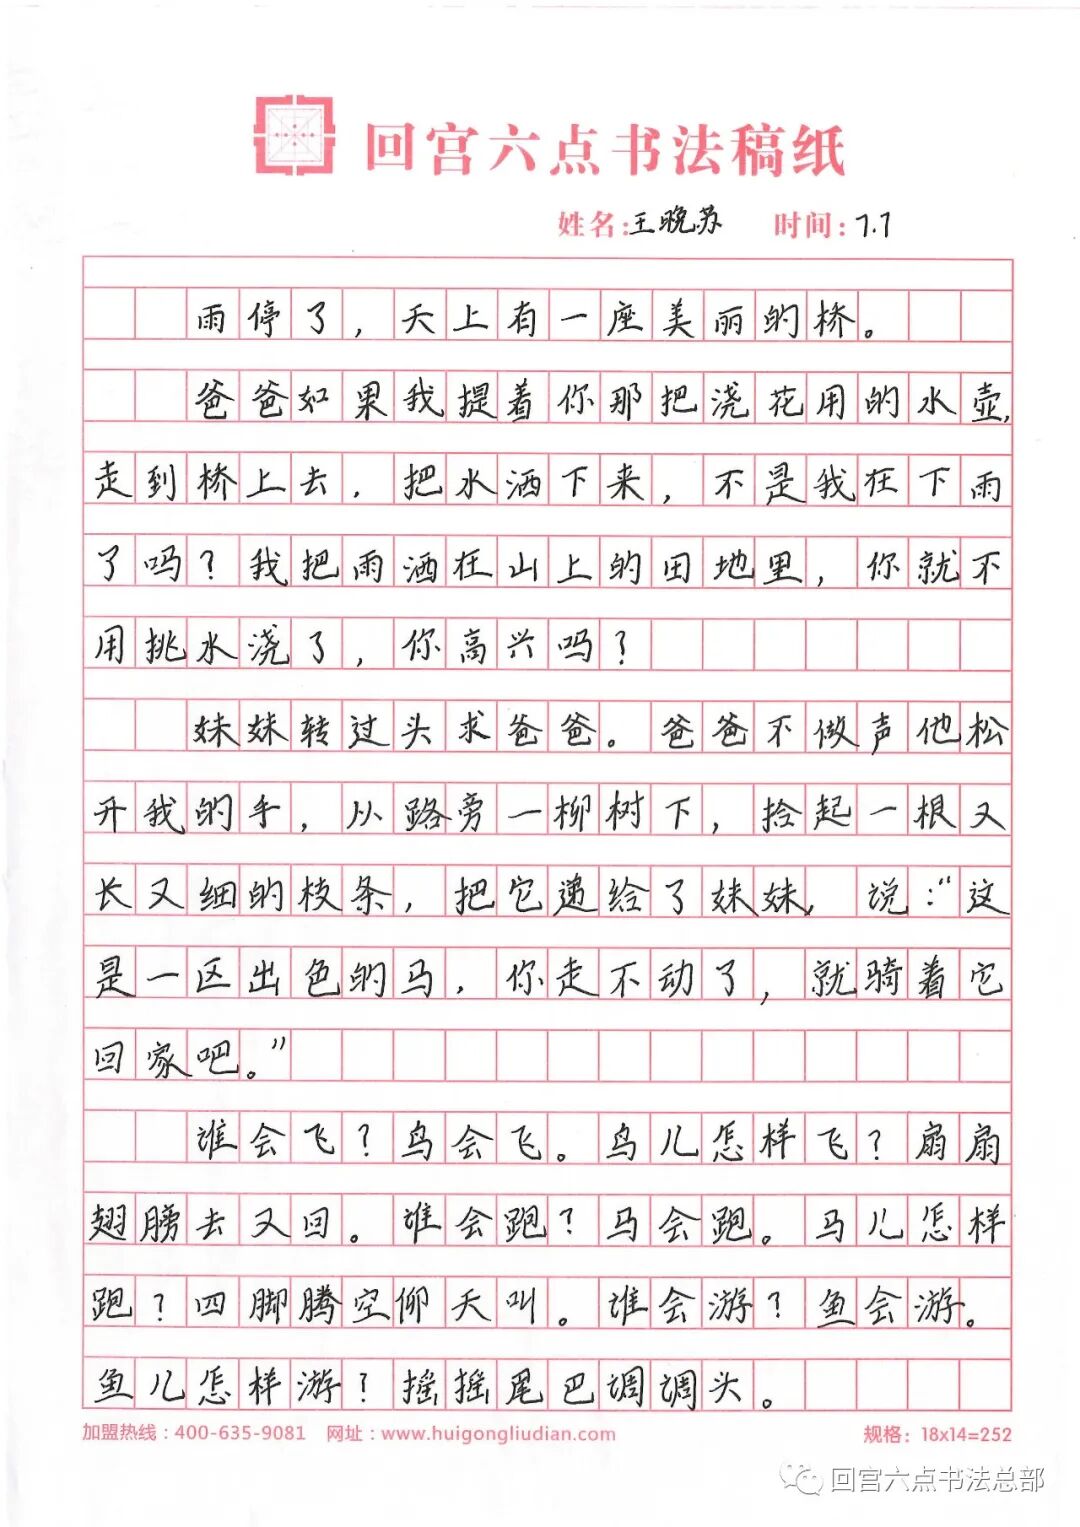 回宫六点书法稿纸
姓名:王晚苏 时间:7.7
雨停了，天上有一座美丽的桥。
爸爸如果我提着你那把浇花用的水壶,
走到桥上去，把水洒下来，不是我在下雨
了吗？我把雨洒在山上的田地里，你就不
用挑水浇了，你高兴吗？
妹妹转过头求爸爸。爸爸不做声他松
开我的手，从路旁一柳树下，捡起一根又
长又细的枝条，把它递给了妹妹，说：“这
是一区出色的马，你走不动了，就骑着它
回家吧。”
谁会飞？鸟会飞。鸟儿怎样飞？扇扇
翅膀去又回。谁会跑？马会跑。马儿怎样
跑？四脚腾空仰天叫。谁会游？鱼会游。
鱼儿怎样游？摇摇尾巴调调头。
加盟热线：400-635-9081 网址：www.huigongliudian.com 规格：18x14=252
回宫六点书法总部